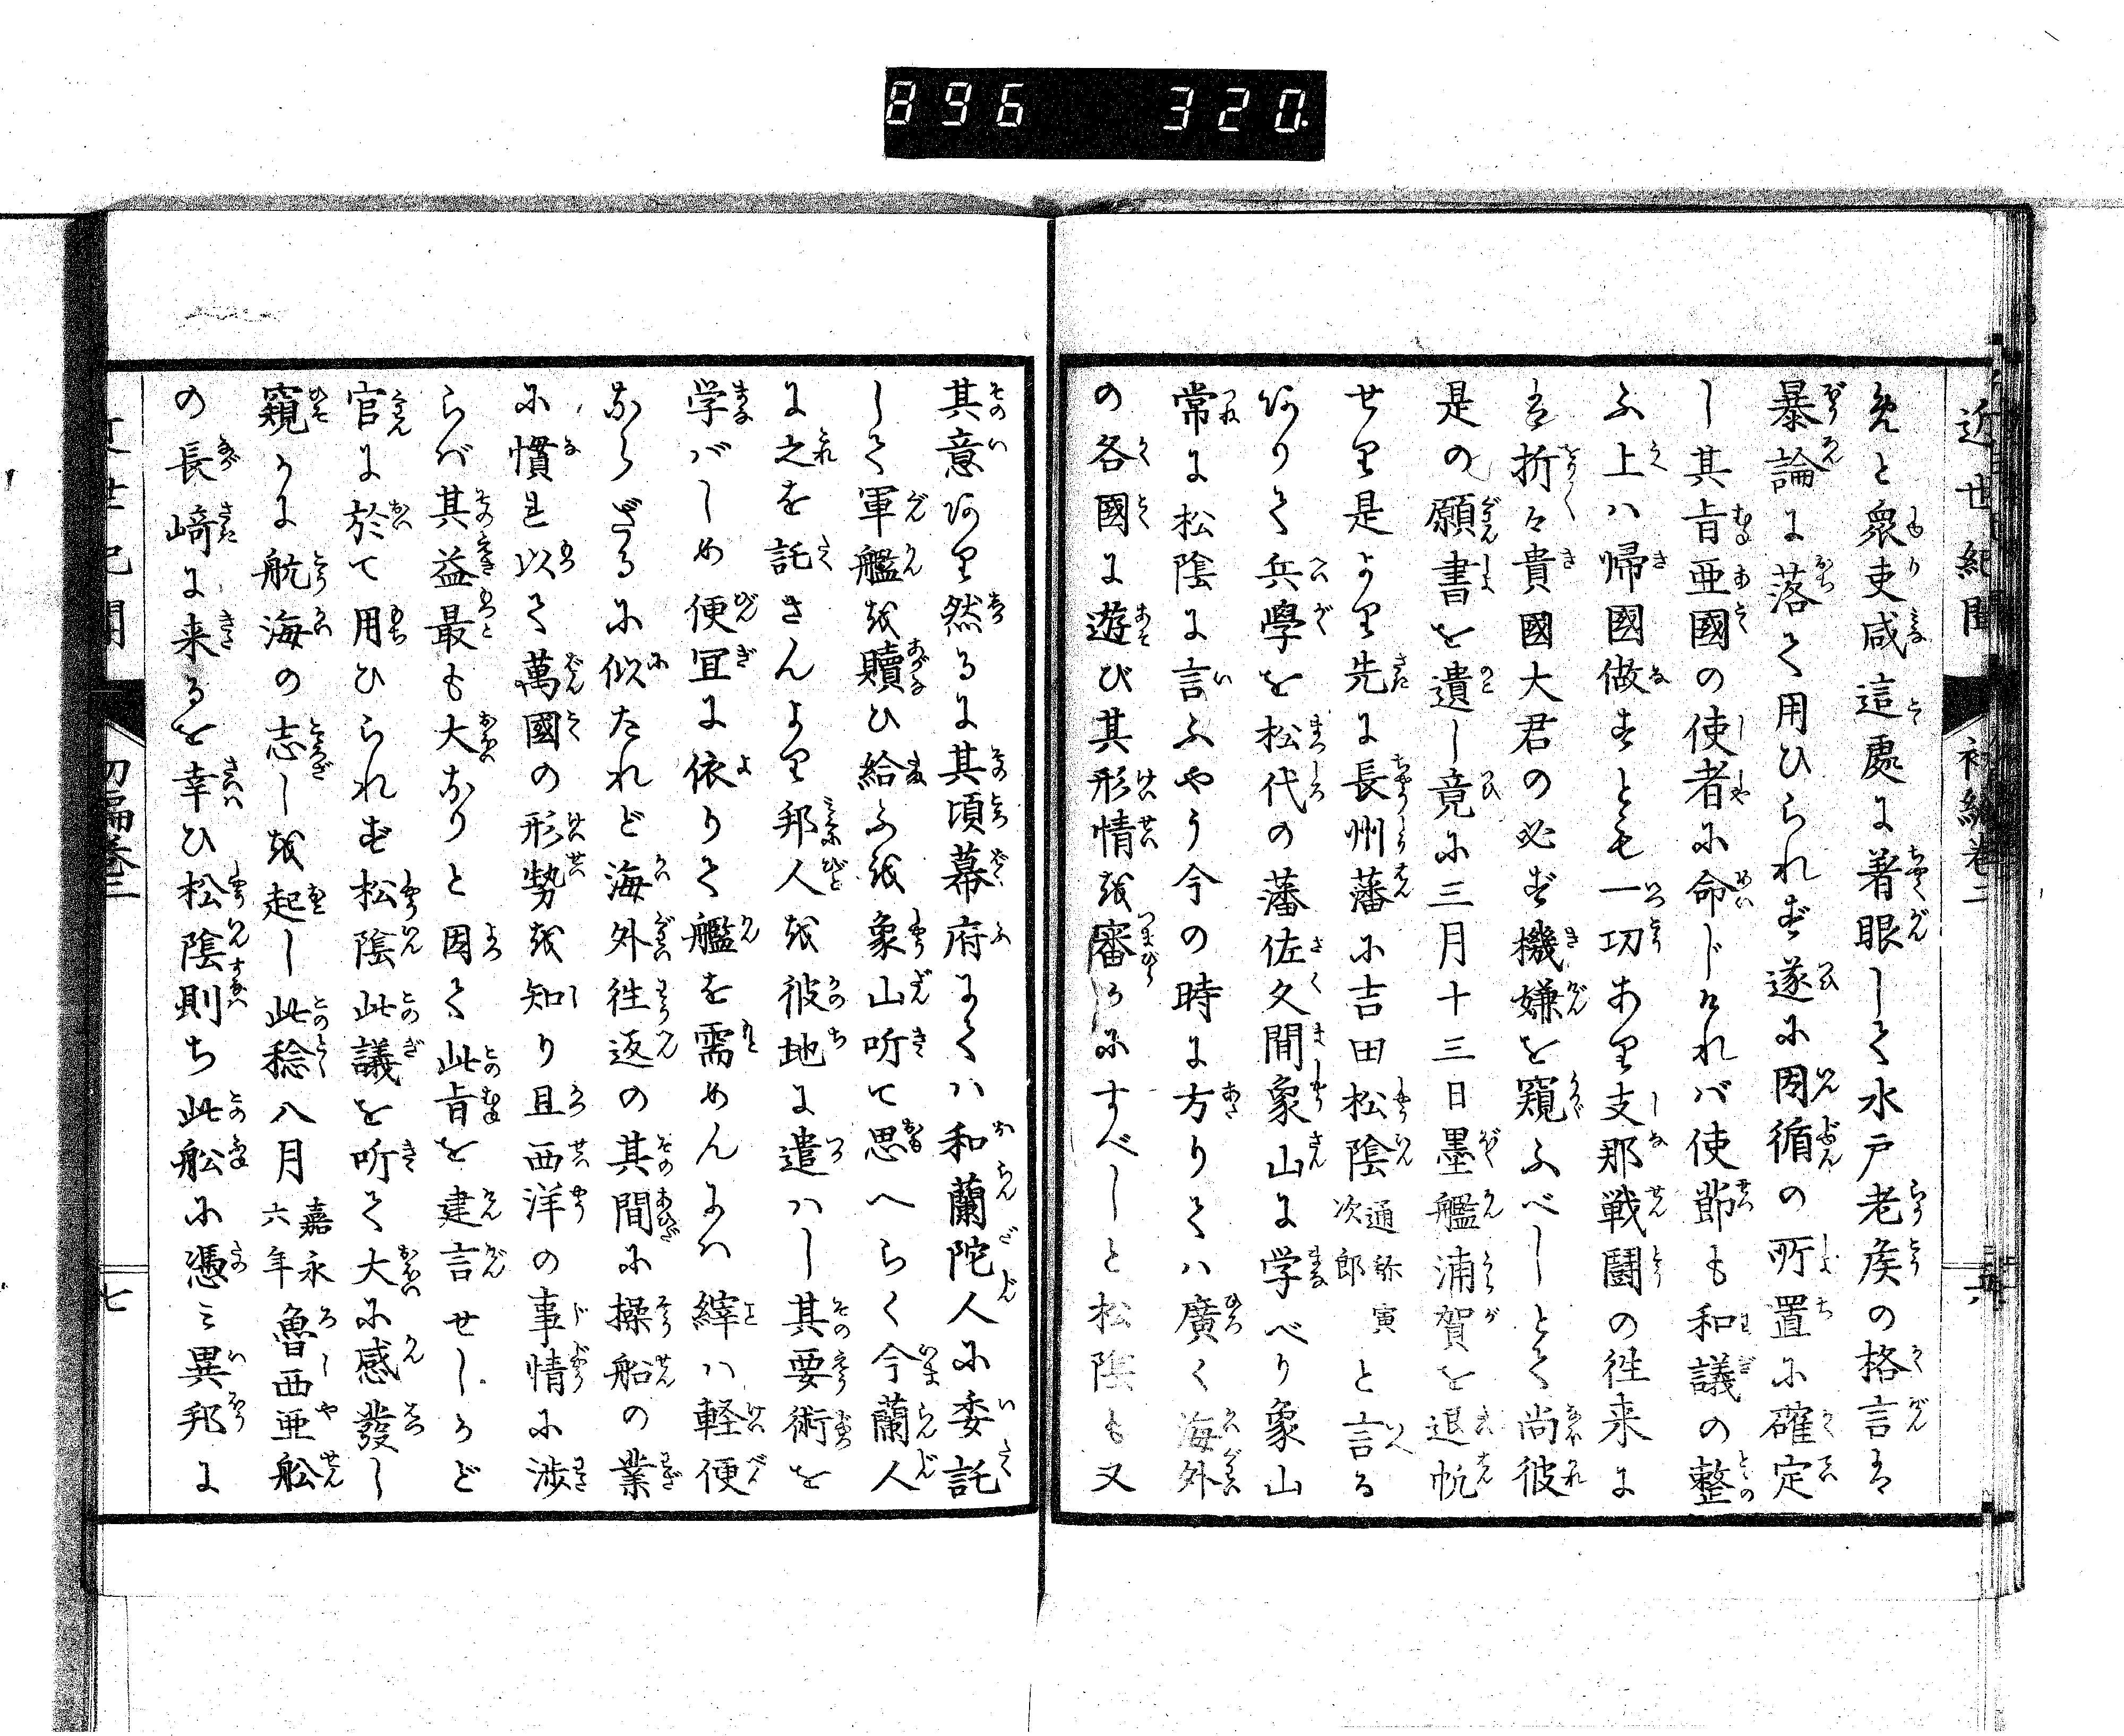 896 320
近世紀聞 初編巻二 六
免と衆吏咸這處に着眼して水戸老矦の格言は
暴論に落て用ひられず遂に因循の所置に確定
し其旨亜國の使者に命じければ使節も和議の整
ふ上ハ帰國做すとも一切あり支那戦鬪の徃来に
は折々貴國大君の必ず機嫌を窺ふべしとて尚彼
是の願書を遺し竟に三月十三日墨艦浦賀を退帆
せり是より先に長州藩に吉田松陰通称寅次郎と言る
ありて兵學を松代の藩佐久間象山に学べり象山
常に松陰に言ふやう今の時に方りてハ廣く海外
の各國に遊び其形情を審かにすべしと松陰も又
其意あり然るに其頃幕府にてハ和蘭陀人に委託
して軍艦を贖ひ給ふを象山听て思へらく今蘭人
に之を託さんより邦人を彼地に遣ハし其要術を
学ばしめ便宜に依りて艦を需めんにハ縡ハ軽便
ならざるに似たれど海外徃返の其間に操船の業
に慣れ以て萬國の形勢を知り且西洋の事情に渉
らば其益最も大なりと因て此旨を建言せしかど
官に於て用ひられず松陰此議を听て大に感發し
窺かに航海の志しを起し此稔八月嘉永六年魯西亜舩
の長﨑に来るを幸ひ松陰則ち此舩に憑ミ異邦に
近世紀聞 初編巻二 七